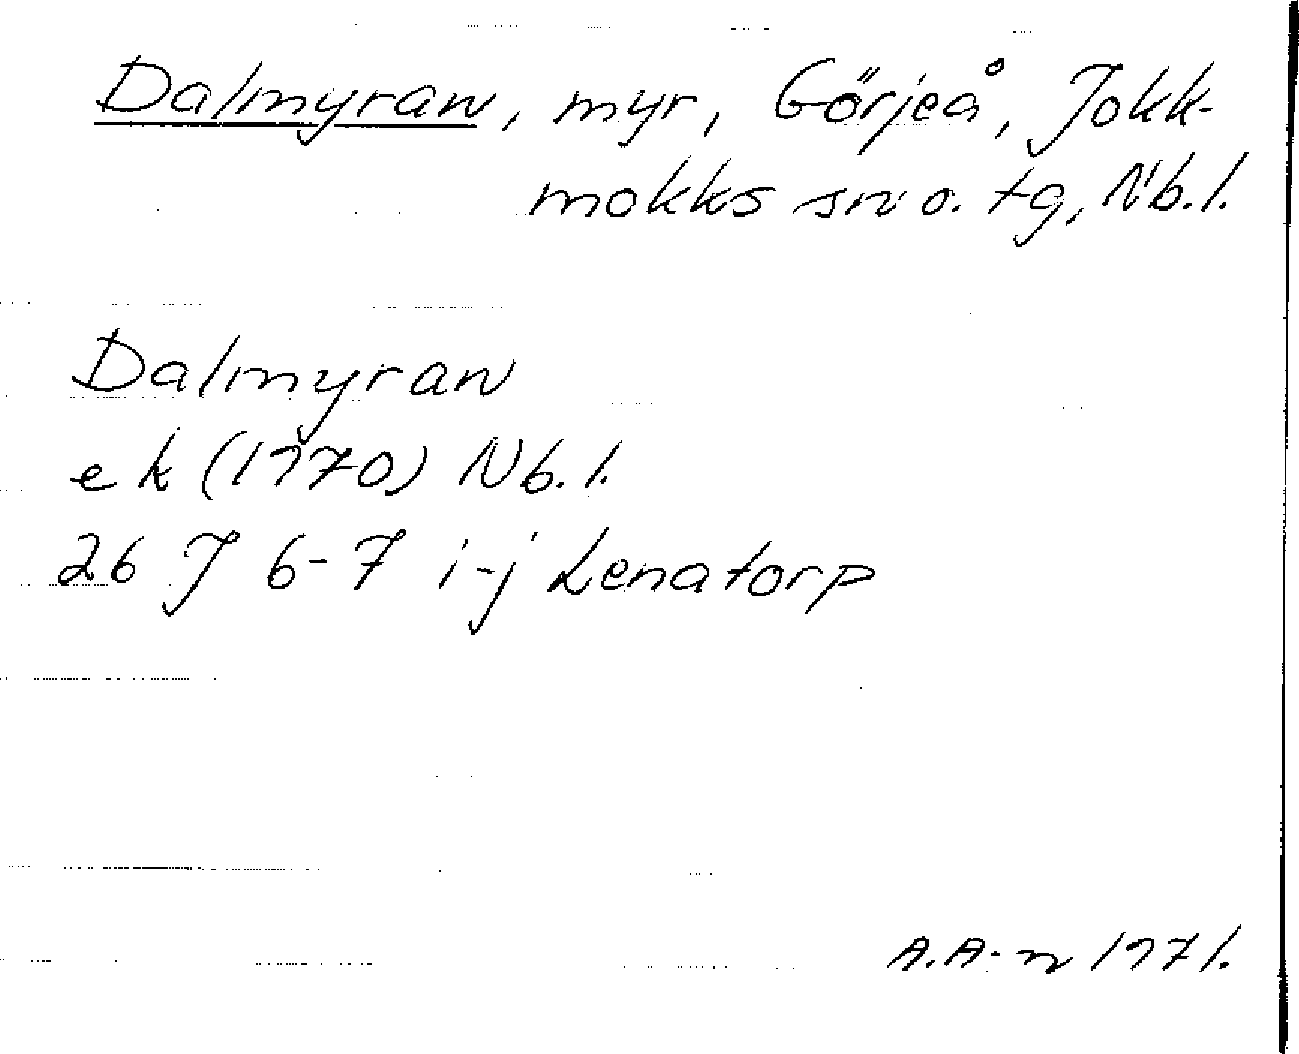 Dalmyran, myr, Görjeå, Jokk-
mokks sn o. tg, Nb.l.
Dalmyran
ek (1970) Nb.l.
26 J 6-7 i-j Lenatorp
A.A-n 1971.